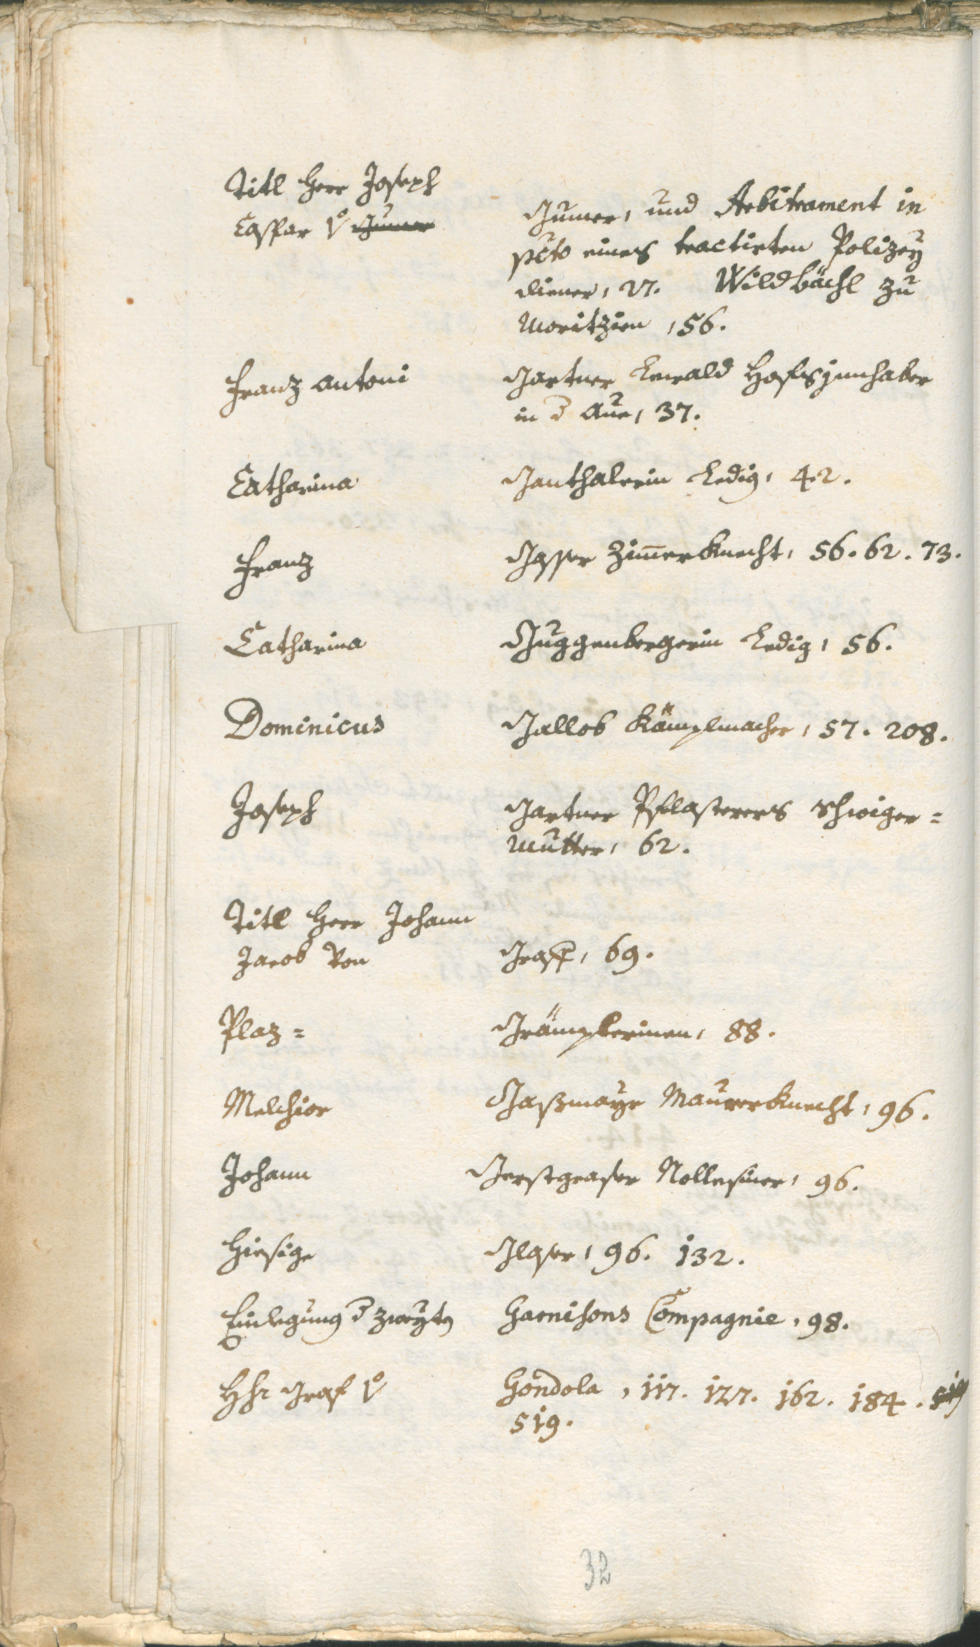 Titl Herr Joseph
Caspar v. Gumer Gumer, und Arbitrament in
pcto eines tractirten Polizey
diener, 27. Wildbächl zu
Moritzien, 56.
Franz Antoni Gartner Hofsjnnhaber
in d Aue, 37.
Catharina Ganthalerin Ledig, 42.
Franz Gasser Zimerknecht, 56. 62. 73.
Catharina Guggenbergerin Ledig, 56.
Dominicus Gallob Kämplmacher, 57. 208.
Joseph Gartner Pflasterers Schwiger=
mutter, 62.
Titl Herr Johann
Jacob Von Graff, 69.
Plaz= Grämplerinen, 88.
Melchior Gaßmayr Maurerknecht, 96.
Johann Gerstgraser Nollesiner, 96.
Hiesige Glaser, 96. 132.
Einlegung d zweyten Garnisons Compagnie, 98.
Hhr Graf v. Gondola, 117. 127. 162. 184.
519.
32